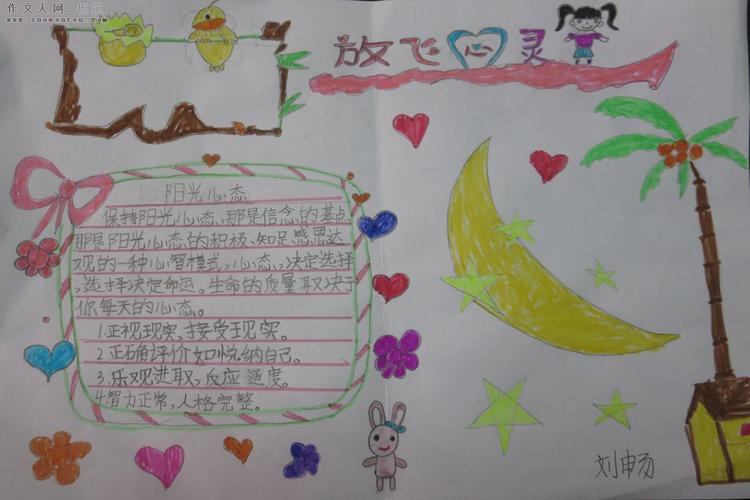 作文人网·板报
www.zuowenren.com
放飞心灵
阳光心态
保持阳光心态、那是信念的基点
那是阳光心态的积极、知足感恩达
观的一种心智模式,心态、决定选择
,选择决定命运。生命的质量取决于
你每天的心态。
1.正视现实,接受现实。
2.正确评价和悦纳自己。
3.乐观进取,反应适度。
4.智力正常,人格完整。
刘畅